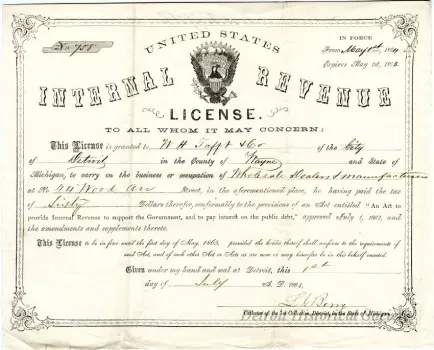 No. 758
UNITED STATES
IN FORCE
From May 1st, 1864
Expires May 1st, 1865.
INTERNAL REVENUE
LICENSE.
TO ALL WHOM IT MAY CONCERN:
This License is granted to W H Tafft & Co of the City
of Detroit in the County of Wayne and State of
Michigan, to carry on the business or occupation of Wholesale Dealers & manufacturers
at No 44 Wood Av Street, in the aforementioned place, he having paid the tax
of Sixty Dollars therefor, conformably to the provisions of an Act entitled "An Act to
provide Internal Revenue to support the Government, and to pay interest on the public debt," approved July 1, 1862, and
the amendments and supplements thereto.
This License to be in force until the first day of May, 1865, provided the holder thereof shall conform to the requirements of
said Act, and of such other Act or Acts as are now or may hereafter be in this behalf enacted.
Given under my hand and seal at Detroit, this 1st
day of July A. D. 1864.
Collector of the 1st Collection District, in the State of Michigan.
Detroit Historical